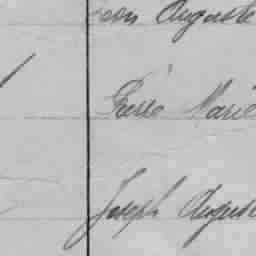 Léon Auguste
Pierre Marie
Joseph Auguste